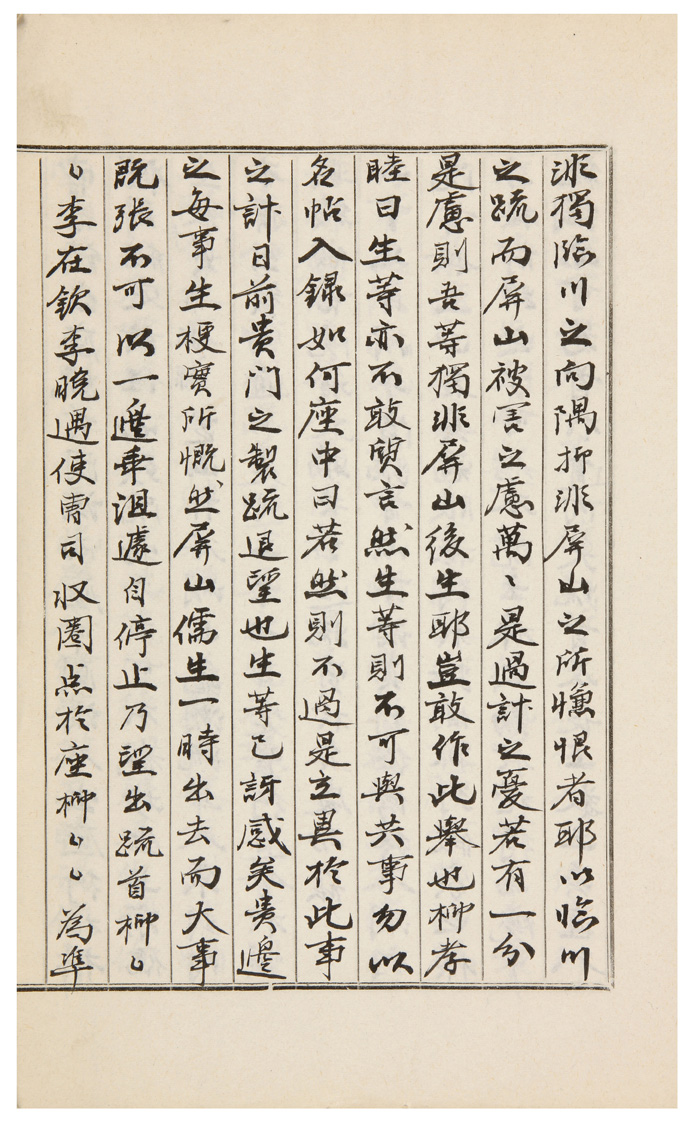 非獨臨川之向隅抑非屛山之所慊恨者耶以臨川
之䟽而屛山被害之慮萬〻是過計之憂若有一分
是慮則吾等獨非屛山後生耶豈敢作此擧也柳孝
睦曰生等亦不敢質言然生等則不可與共事勿以
名帖入錄如何座中曰若然則不過是立異於此事
之計日前貴門之製䟽退望也生等已訝惑矣貴邊
之每事生梗實所慨然屛山儒生一時出去而大事
旣張不可以一邊乖沮遽自停止乃望出䟽首柳〻
〻李在欽李晩遇使曹司收圈点於座柳〻〻為準